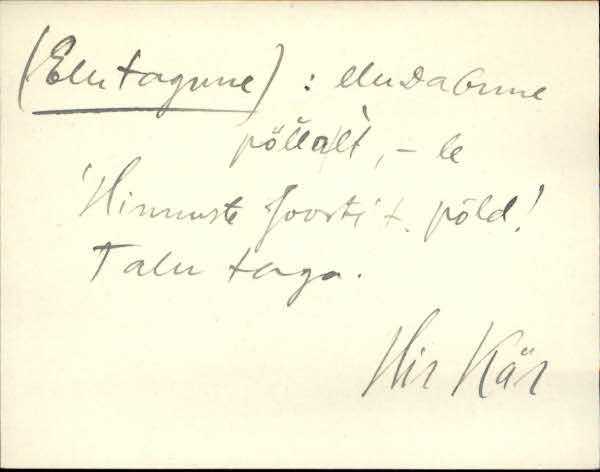 (Elutagune) : eluDaGune
põllalt, – le
'Hinnuste Joosti t. põld!
Talu taga.
Hir Kär